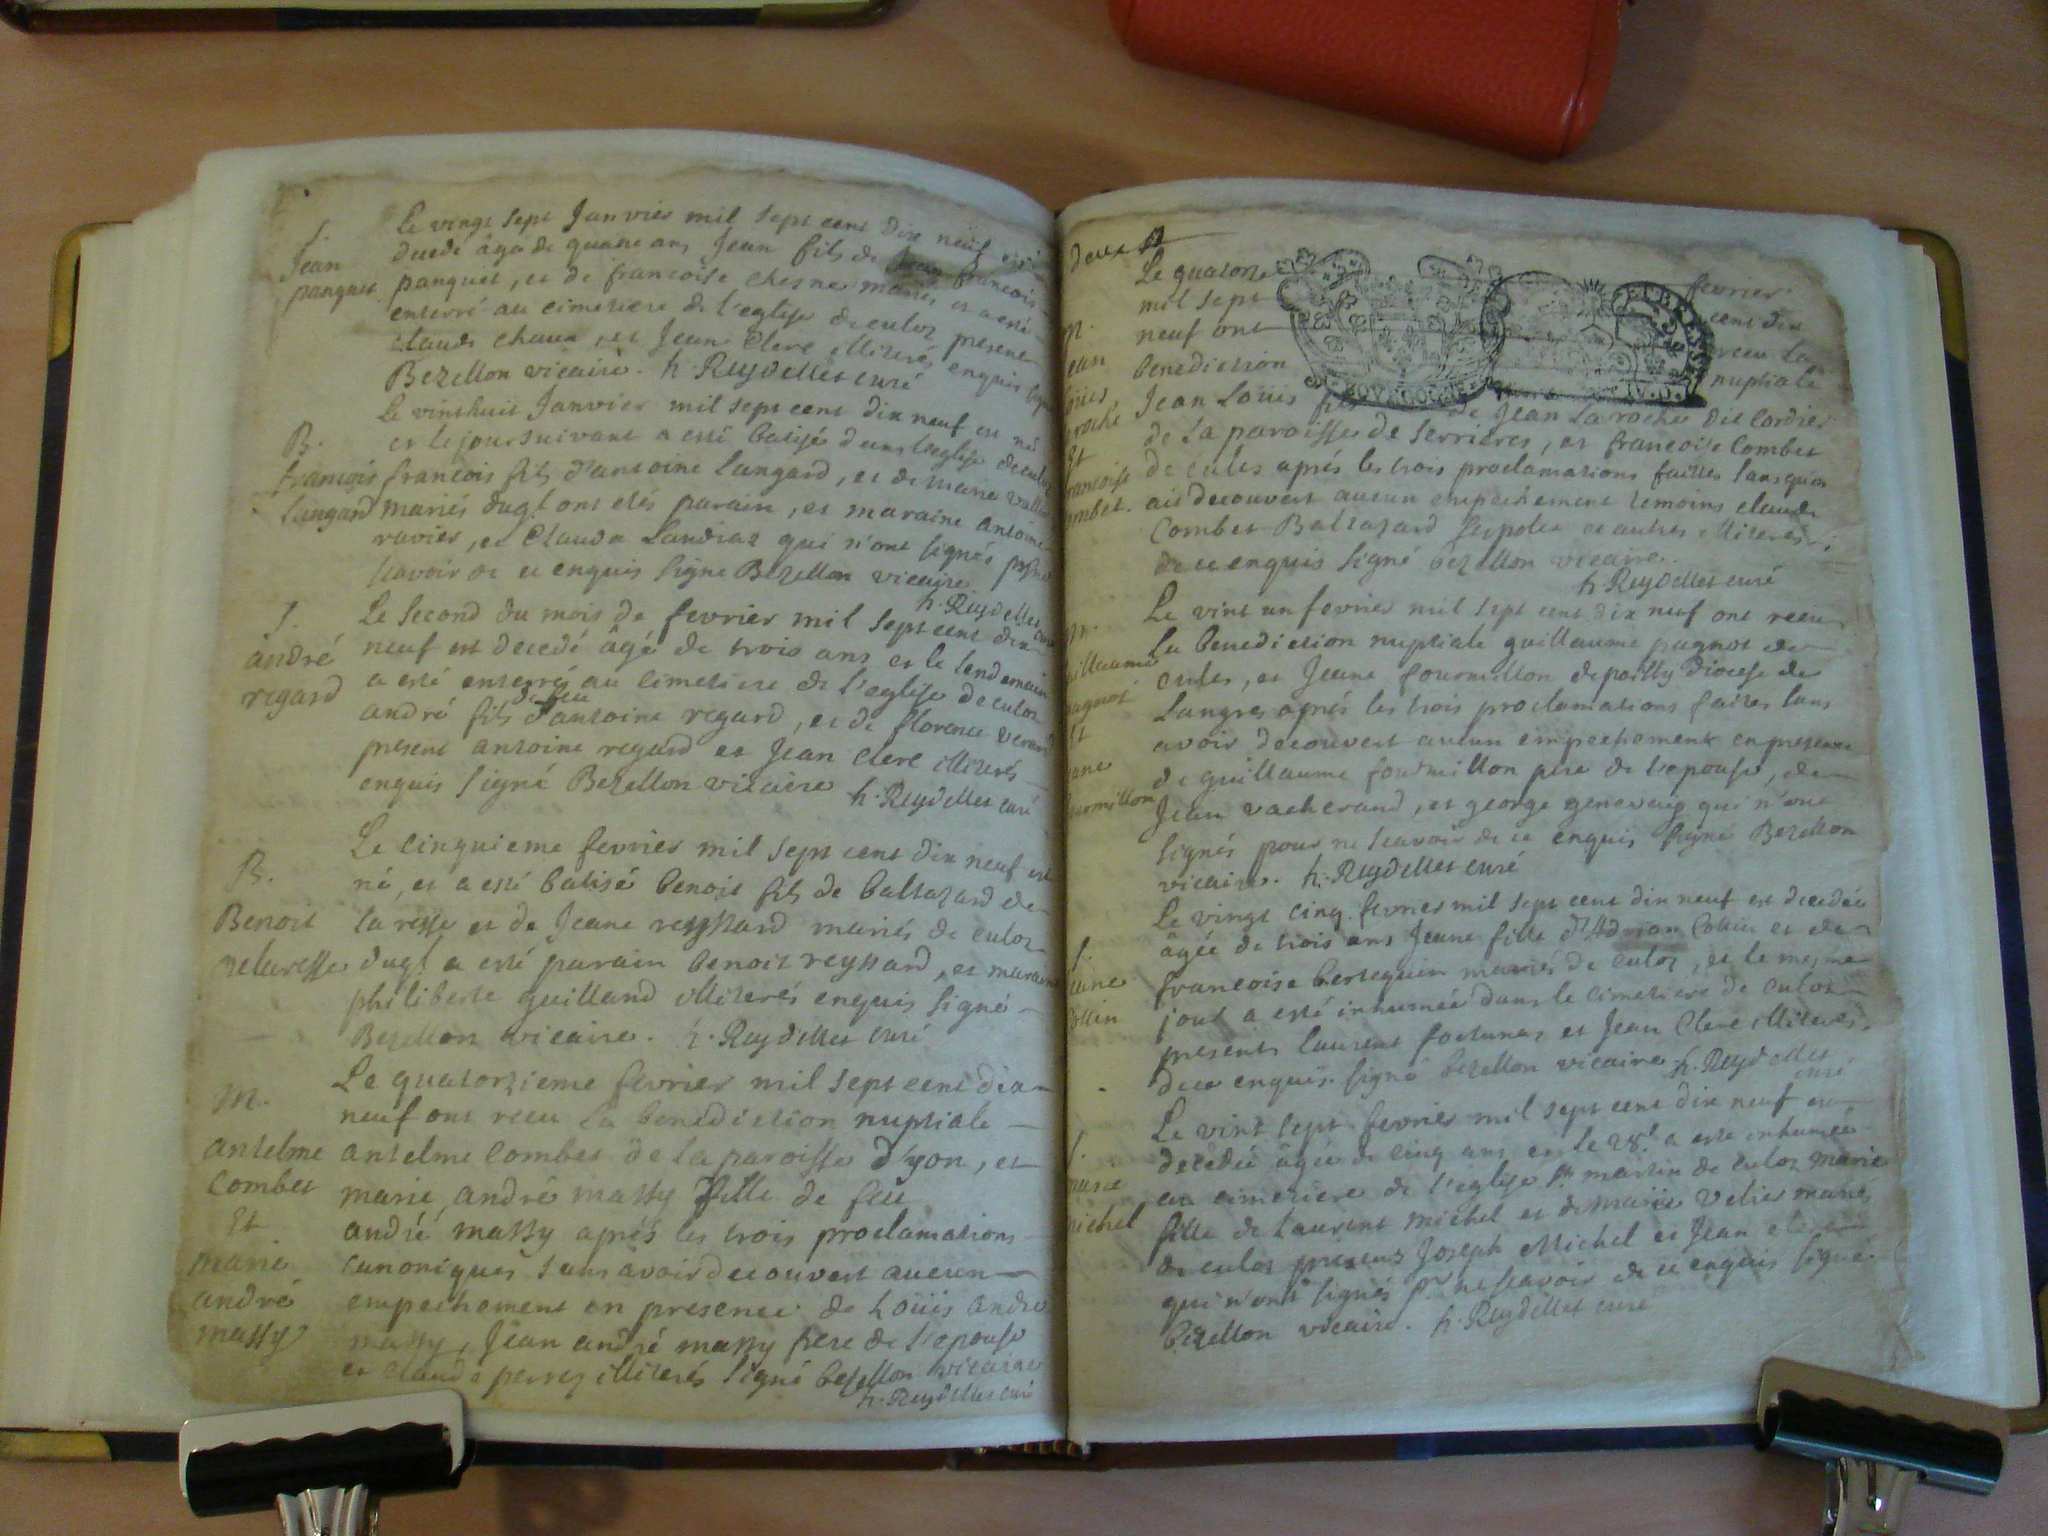 S.
Jean
panquet
Le vingt sept Janvier mil sept cent dix neuf
decedé âgé de quatre ans Jean fils de francois
panquet, et de francoise chesne mariés et a esté
enterré au cimetiere de l'eglise de culoz present
claude chaux, et Jean Clerc illiterés enquis signé
Bezellon vicaire. h. Reydellet curé
B.
francois
Lungard
Le vinthuit Janvier mil sept cent dix neuf est né
et le jour suivant a esté batisé dans l'eglise de culoz
francois fils d'antoine Lungard, et de marie
mariés dud.t ont etés parain, et maraine antoine
ravier, et Clauda Landraz qui n'ont signés
scavoir de ce enquis signé Bezellon vicaire
h. Reydellet curé
S.
andré
regard
Le second du mois de fevrier mil sept cent dix
neuf est decedé âgé de trois ans et le lendemain
a esté enterré au cimetiere de l'eglise de culoz
andré fils de feu d'antoine regard, et de florence
present antoine regard et Jean clerc illiterés
enquis signé Bezellon vicaire h. Reydellet curé
B.
Benoit
delaresse
Le cinquieme fevrier mil sept cent dix neuf est
né, et a esté batisé benoit fils de baltazard de
la resse et de Jeane reyssard mariés de culoz
dud.t a esté parain benoit reyssard, et maraine
philiberte guilland illiterés enquis signé
Bezellon vicaire. h. Reydellet curé
M.
antelme
Combet
Et
marie
andré
massy
Le quatorzieme fevrier mil sept cent dix
neuf ont receu la benediction nuptiale
antelme Combet de la paroisse d'yon, et
marie, andré massy fille de feu
andré massy aprés les trois proclamations
canoniques sans avoir decouvert aucun
empechement en presence de Loüis andré
massy, Jean andré massy frere de l'epouse
et claude perrez illiterés signé bezellon vicaire
h. Reydellet curé
deux
M.
ean
oüis
roche
Et
rancoise
ombet.
Le quatorze fevrier
mil sept cent dix
neuf ont receu la
benediction nuptiale
Jean Loüis fils de Jean La roche dit Cordier
de la paroisse de serrieres, et francoise Combet
de culés aprés les trois proclamations faittes sans qu'on
ait decouvert aucun empechement temoins claude
Combet Baltazard serpolet et autres illiterés
de ce enquis signé bezellon vicaire.
h. Reydellet curé
M.
uillaume
pagnot
Et
eane
ourmillon
Le vint un fevrier mil sept cent dix neuf ont receu
la benediction nuptiale guillaume pagnot de
culés, et Jeane fourmillon de poilly diocese de
Langres aprés les trois proclamations faites sans
avoir decouvert aucun empechement en presence
de guillaume fourmillon pere de l'epouse, de
Jean vacherand, et george genevay qui n'ont
signés pour ne scavoir de ce enquis signé Bezellon
vicaire. h. Reydellet curé
S.
eane
ollin
Le vingt cinq fevrier mil sept cent dix neuf est decedée
âgée de trois ans Jeane fille d'Adrian Collin et de
francoise berteguin mariés de culoz, et le mesme
jour a esté inhumée dans le cimetiere de culoz
presents laurent fortunaz et Jean Clerc illiterés
de ce enquis signé bezellon vicaire h. Reydellet
curé
S.
marie
michel
Le vint sept fevrier mil sept cent dix neuf est
decedée âgée de cinq ans et le 28.e a esté inhumée
au cimetiere de l'eglise St martin de culoz marie
fille de Laurent michel et de marie Velier mariés
de culoz presens Joseph Michel et Jean clerc
qui n'ont signés pr ne scavoir de ce enquis signé
bezellon vicaire. h. Reydellet curé